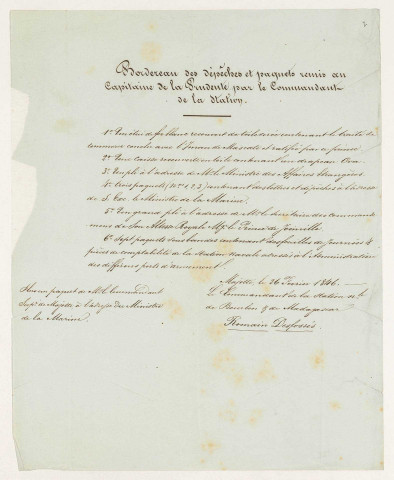 7
Bordereau des dépêches et paquets remis au
Capitaine de la Prudente par le Commandant
de la Station.
1° Un étui de fer blanc recouvert de toile cirée contenant le traité de
commerce conclu avec l'Iman de Mascate et ratifié par ce prince
2° Une caisse recouverte en toile contenant un drapeau Ova
3° Un pli à l'adresse de Mr le Ministre des affaires étrangères
4° trois paquets (Nos 1, 2, 3) contenant des lettres et dépêches à l'adresse
de S. Exc. le Ministre de la Marine.
5° Un grand pli à l'adresse de Mr le Secrétaire des commande
mens de Son Altesse Royale Mgr le Prince de Joinville
6° Sept paquets sous bandes contenant des feuilles de journées &
pièces de comptabilité de la Station navale adressés à l'Administration
des différens ports d'armement.
Mayotte, le 26 Février 1846.
Le Commandant de la Station nle
de Bourbon & de Madagascar
Romain Desfossés
Plus un paquet de Mr le Commandant
Supr de Mayotte, à l'adresse du Ministre
de la Marine.